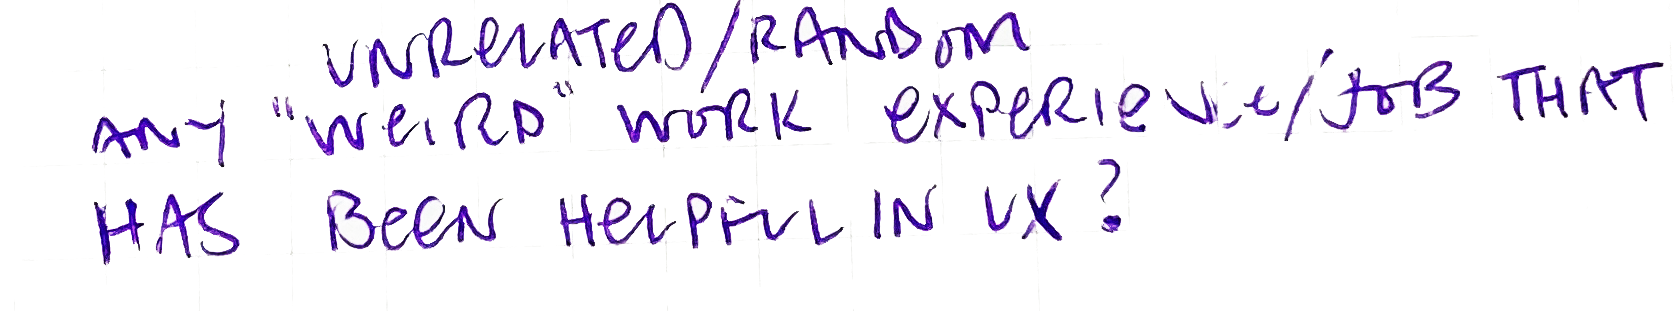 UNRELATED/RANDOM
ANY "WEIRD" WORK EXPERIENCE/JOB THAT
HAS BEEN HELPFUL IN UX?